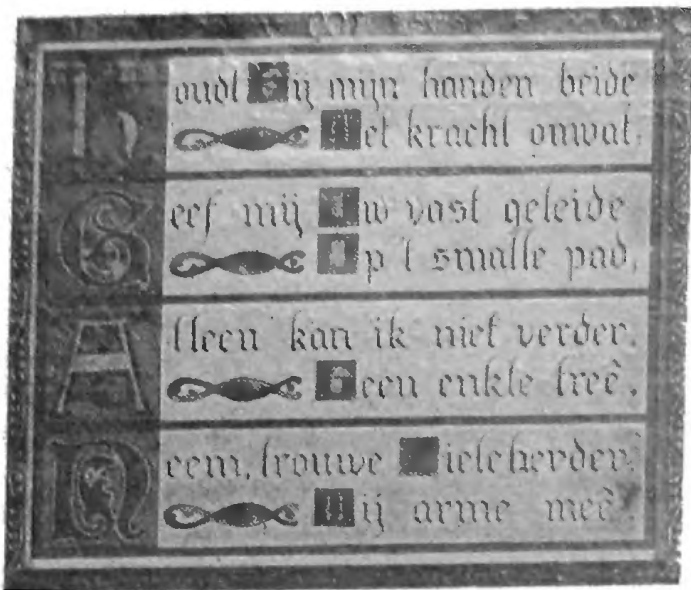 Houdt Gij mijn handen beide
Met kracht omvat,
Geef mij Uw vast geleide
Op 't smalle pad,
Alleen kan ik niet verder,
Geen enkle treê,
Neem, trouwe Zieleherder,
Mij arme meê